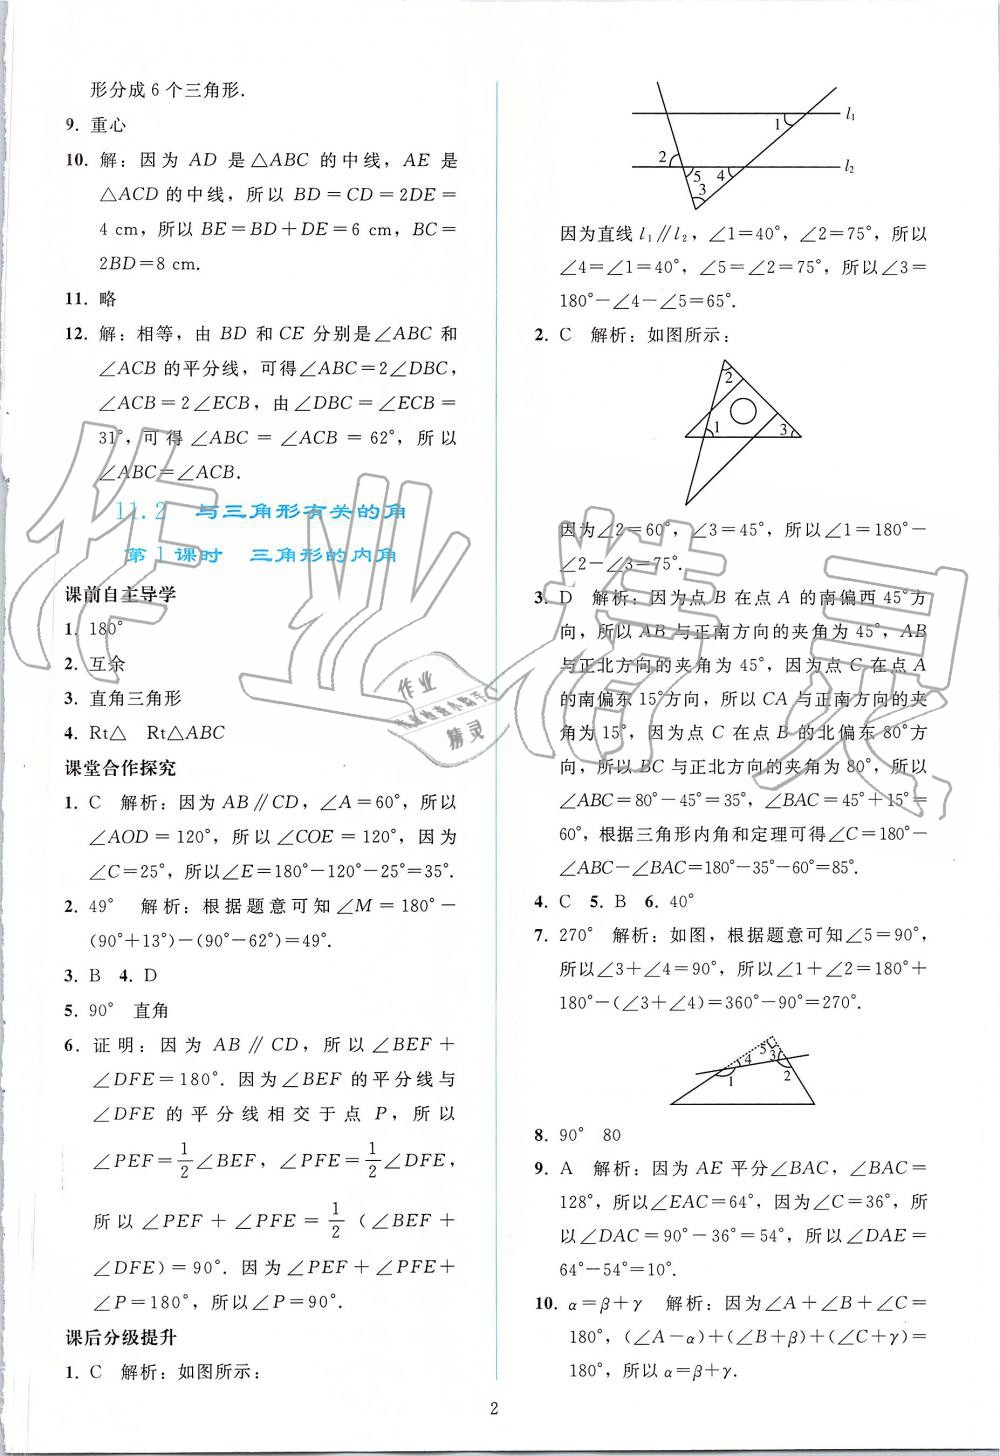 形分成 6 个三角形.
9. 重心
10. 解:因为 AD 是△ABC 的中线,AE 是
△ACD 的中线,所以 BD=CD=2DE=
4 cm,所以 BE=BD+DE=6 cm,BC=
2BD=8 cm.
11. 略
12. 解:相等,由 BD 和 CE 分别是∠ABC 和
∠ACB 的平分线,可得∠ABC=2∠DBC,
∠ACB=2∠ECB,由∠DBC=∠ECB=
31°,可得 ∠ABC = ∠ACB = 62°,所以
∠ABC=∠ACB.
11.2 与三角形有关的角
第 1 课时 三角形的内角
课前自主导学
1. 180°
2. 互余
3. 直角三角形
4. Rt△ Rt△ABC
课堂合作探究
1. C 解析:因为 AB∥CD,∠A=60°,所以
∠AOD=120°,所以∠COE=120°,因为
∠C=25°,所以∠E=180°-120°-25°=35°.
2. 49° 解析:根据题意可知∠M=180°-
(90°+13°)-(90°-62°)=49°.
3. B 4. D
5. 90° 直角
6. 证明:因为 AB∥CD,所以∠BEF+
∠DFE=180°. 因为∠BEF 的平分线与
∠DFE 的平分线相交于点 P,所以
∠PEF=1/2∠BEF,∠PFE=1/2∠DFE,
所以∠PEF+∠PFE=1/2(∠BEF+
∠DFE)=90°. 因为∠PEF+∠PFE+
∠P=180°,所以∠P=90°.
课后分级提升
1. C 解析:如图所示:
1
l₁
2
5
4
3
l₂
因为直线 l₁∥l₂,∠1=40°,∠2=75°,所以
∠4=∠1=40°,∠5=∠2=75°,所以∠3=
180°-∠4-∠5=65°.
2. C 解析:如图所示:
2
1
3
因为∠2=60°,∠3=45°,所以∠1=180°-
∠2-∠3=75°.
3. D 解析:因为点 B 在点 A 的南偏西 45°方
向,所以 AB 与正南方向的夹角为 45°,AB
与正北方向的夹角为 45°,因为点 C 在点 A
的南偏东 15°方向,所以 CA 与正南方向的夹
角为 15°,因为点 C 在点 B 的北偏东 80°方
向,所以 BC 与正北方向的夹角为 80°,所以
∠ABC=80°-45°=35°,∠BAC=45°+15°=
60°,根据三角形内角和定理可得∠C=180°-
∠ABC-∠BAC=180°-35°-60°=85°.
4. C 5. B 6. 40°
7. 270° 解析:如图,根据题意可知∠5=90°,
所以∠3+∠4=90°,所以∠1+∠2=180°+
180°-(∠3+∠4)=360°-90°=270°.
5
4
3
1
2
8. 90° 80
9. A 解析:因为 AE 平分∠BAC,∠BAC=
128°,所以∠EAC=64°,因为∠C=36°,所
以∠DAC=90°-36°=54°,所以∠DAE=
64°-54°=10°.
10. α=β+γ 解析:因为∠A+∠B+∠C=
180°,(∠A-α)+(∠B+β)+(∠C+γ)=
180°,所以 α=β+γ.
2
作业精灵
作业
精灵